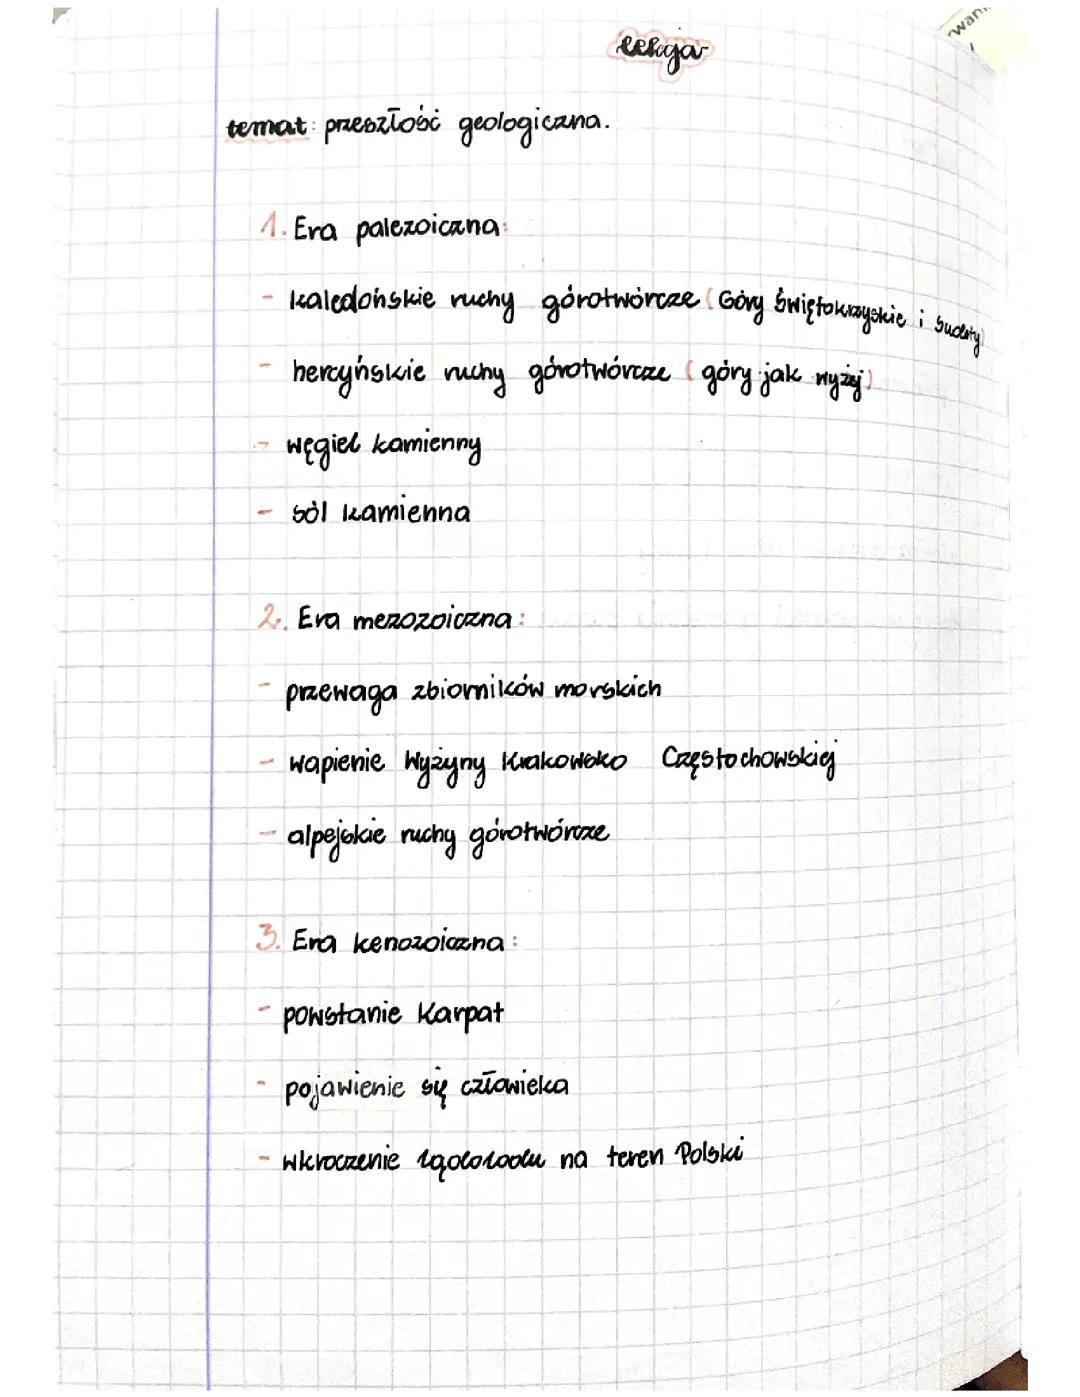 lekcja
temat: przeszłość geologiczna.
1. Era palezoiczna:
- kaledońskie ruchy górotwórcze (Góry Świętokrzyskie i Sudety)
- hercyńskie ruchy górotwórcze (góry jak wyżej)
- węgiel kamienny
- sól kamienna
2. Era mezozoiczna:
- przewaga zbiorników morskich
- wapienie Wyżyny Krakowsko Częstochowskiej
- alpejskie ruchy górotwórcze
3. Era kenozoiczna:
- powstanie Karpat
- pojawienie się człowieka
- wkroczenie lądolodu na teren Polski